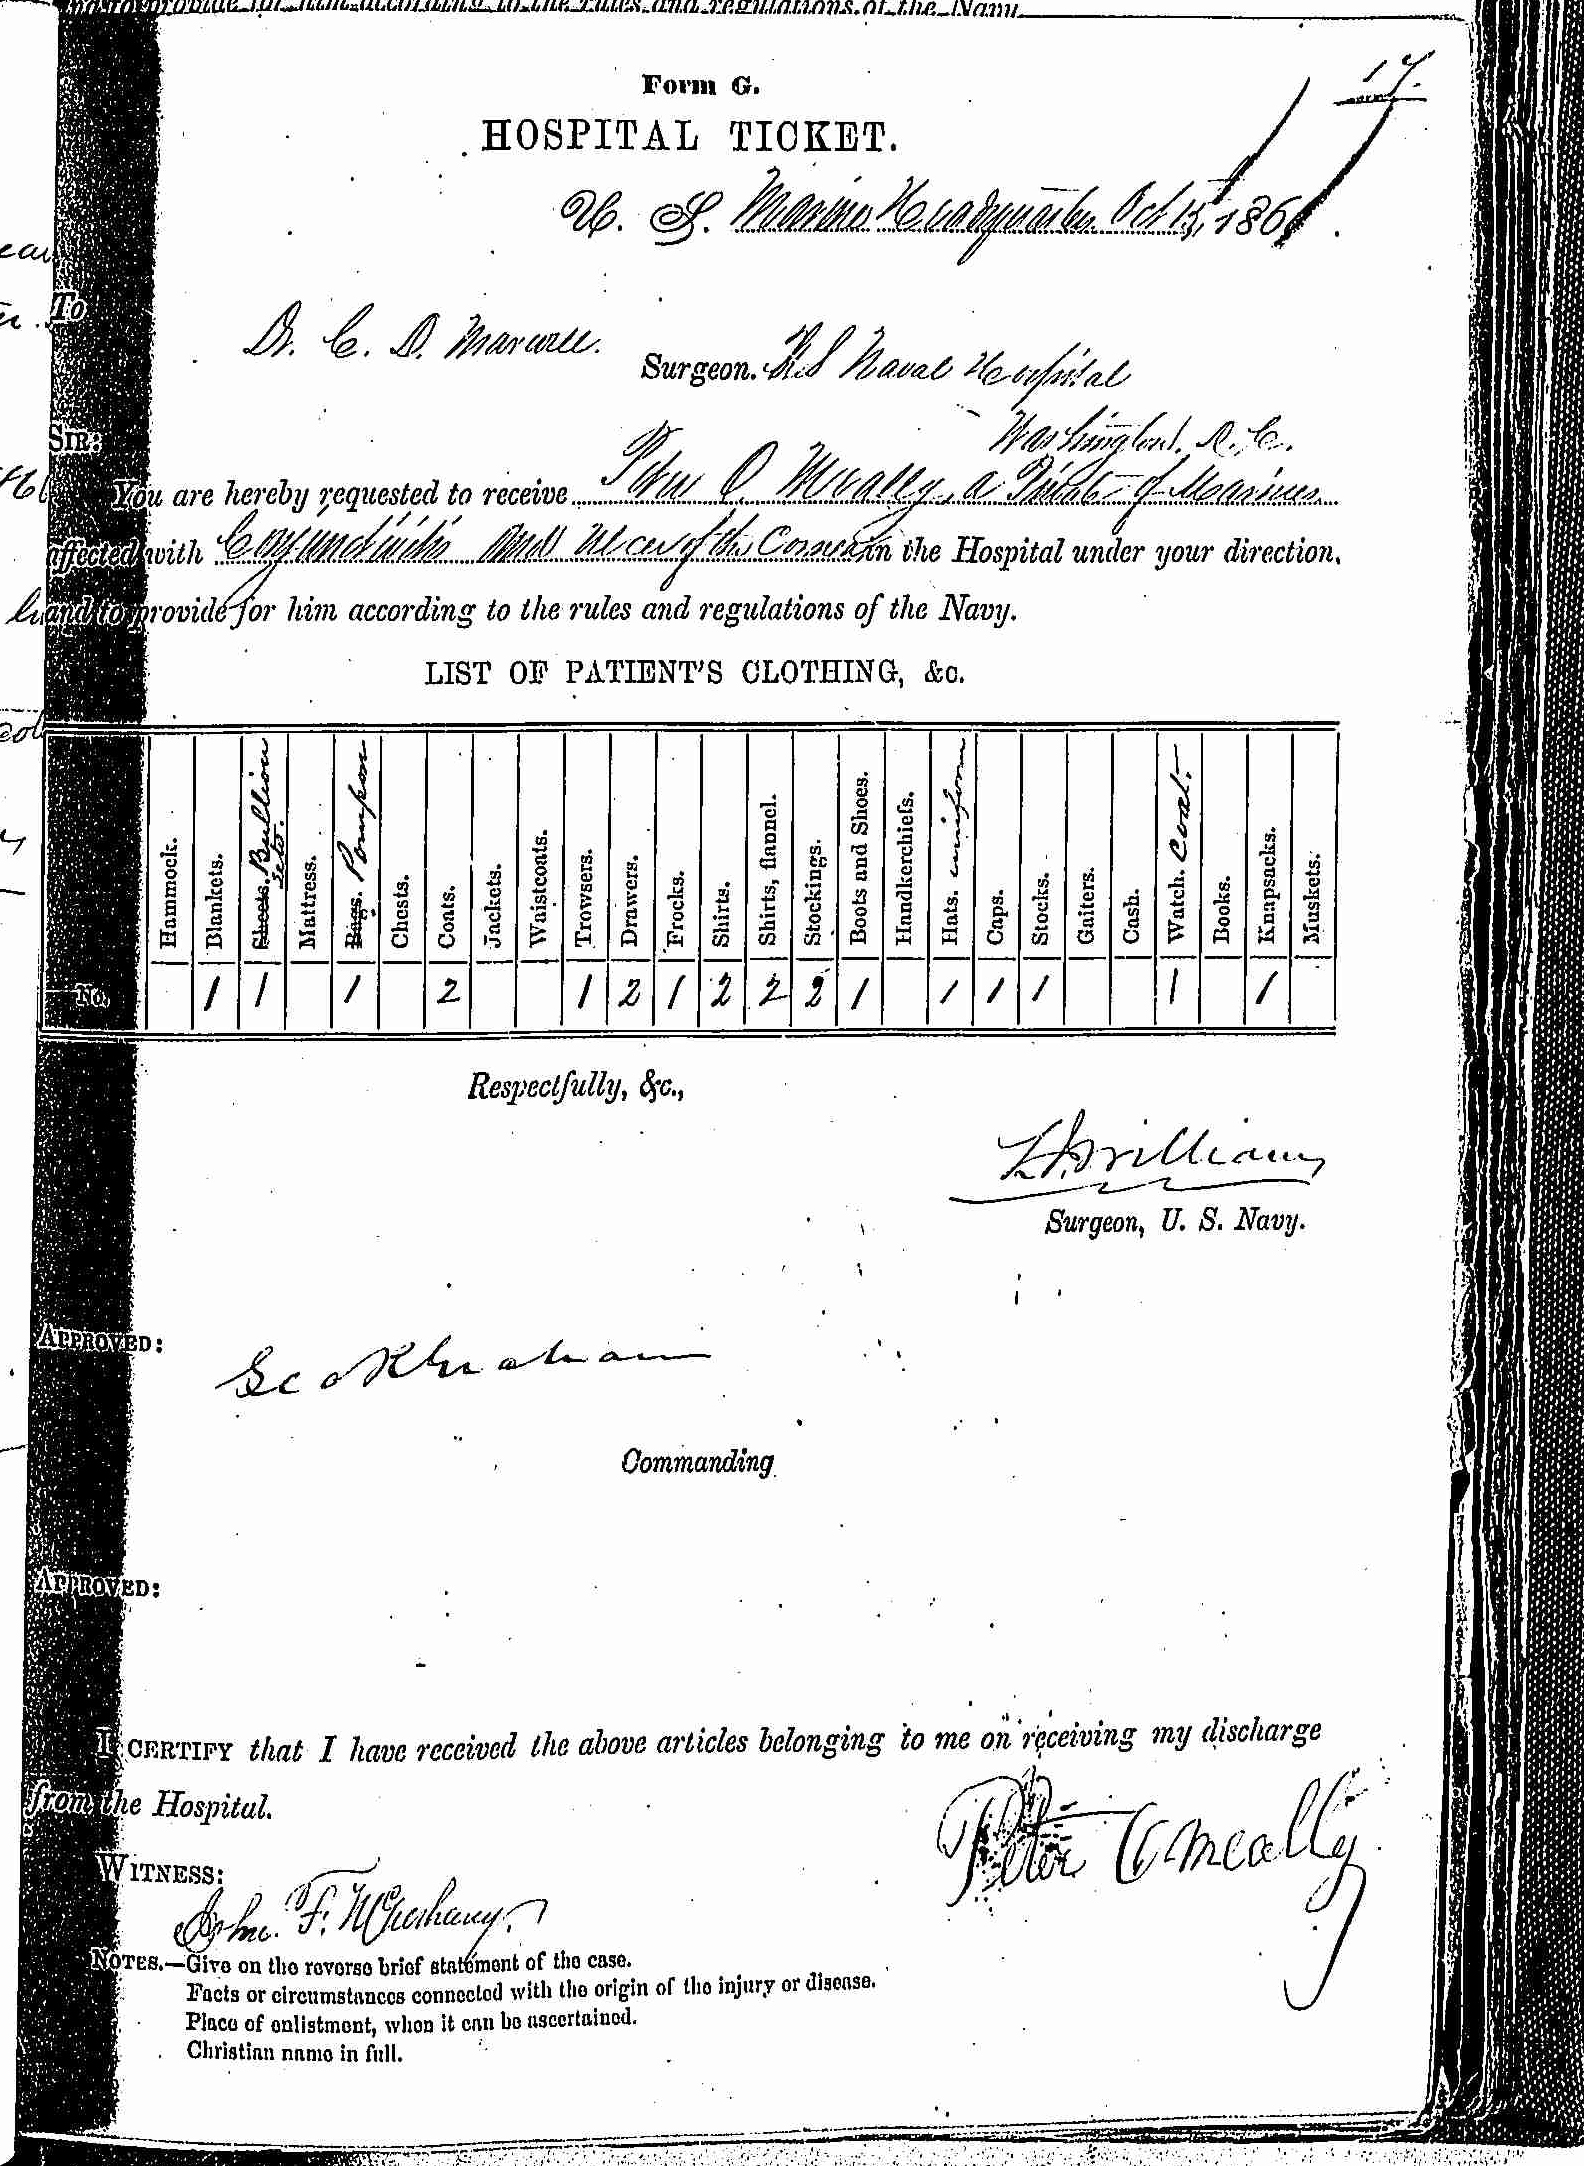 and to provide for him according to the rules and regulations of the Navy
17.
Form G.
HOSPITAL TICKET.
U. S. Marine Headquarters Oct 15, 186
To
Dr. C. D. Maxwell.
Surgeon. U.S Naval Hospital
Washington. D.C.
SIR:
You are hereby requested to receive Peter O. Meally, a Private of Marines
affected with Conjunctivitis and Ulcer of the Cornea in the Hospital under your direction,
and to provide for him according to the rules and regulations of the Navy.
LIST OF PATIENT'S CLOTHING, &c.
Hammock. Blankets. Sheets. Bullion Seto. Mattress. Bags. Pompon Chests. Coats. Jackets. Waistcoats. Trowsers. Drawers. Frocks. Shirts. Shirts, flannel. Stockings. Boots and Shoes. Handkerchiefs. Hats. uniform Caps. Stocks. Gaiters. Cash. Watch. Coat. Books. Knapsacks. Muskets.
No. 1 1 1 2 1 2 1 2 2 2 1 1 1 1 1 1
Respectfully, &c.,
Williams
Surgeon, U. S. Navy.
APPROVED:
Geo R Graham
Commanding
APPROVED:
I CERTIFY that I have received the above articles belonging to me on receiving my discharge
from the Hospital.
Peter O Meally
WITNESS:
John. F.
NOTES.—Give on the reverse brief statement of the case.
Facts or circumstances connected with the origin of the injury or disease.
Place of enlistment, when it can be ascertained.
Christian name in full.